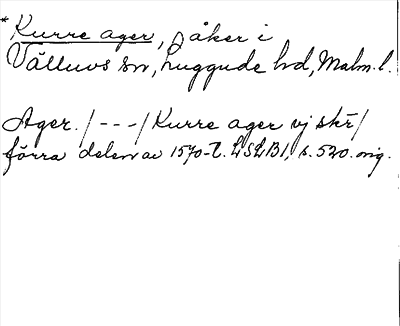 *Kurre ager, påker i
Välluvs sn, Luggude hd, Malm.l.
Ager. /---/ Kurre ager vj skr̄/
förra delen av 1570-t. LSLB1, s. 520. orig.